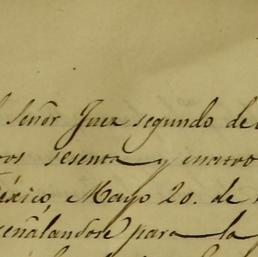 señor Juez segundo de
ros sesenta y cuatro
éxico, Mayo 20. de
señalandose para la